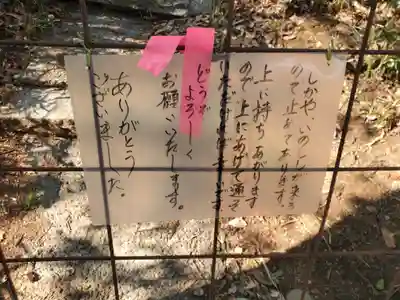 しかや、いのししが来る
ので止めてあります。
上に持ち あがります
ので、上にあげて通って
いただければ幸いです
どうぞ
よろしく
お願いいたします。
ありがとう
ございました。